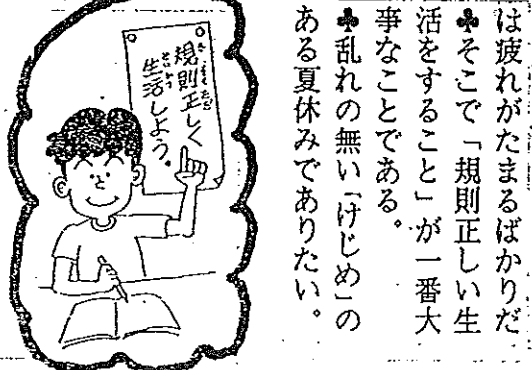 は疲れがたまるばかりだ
♣そこで「規則正しい生
活をすること」が一番大
事なことである。
♣乱れの無い「けじめ」の
ある夏休みでありたい。
規則正しく
生活しよう。